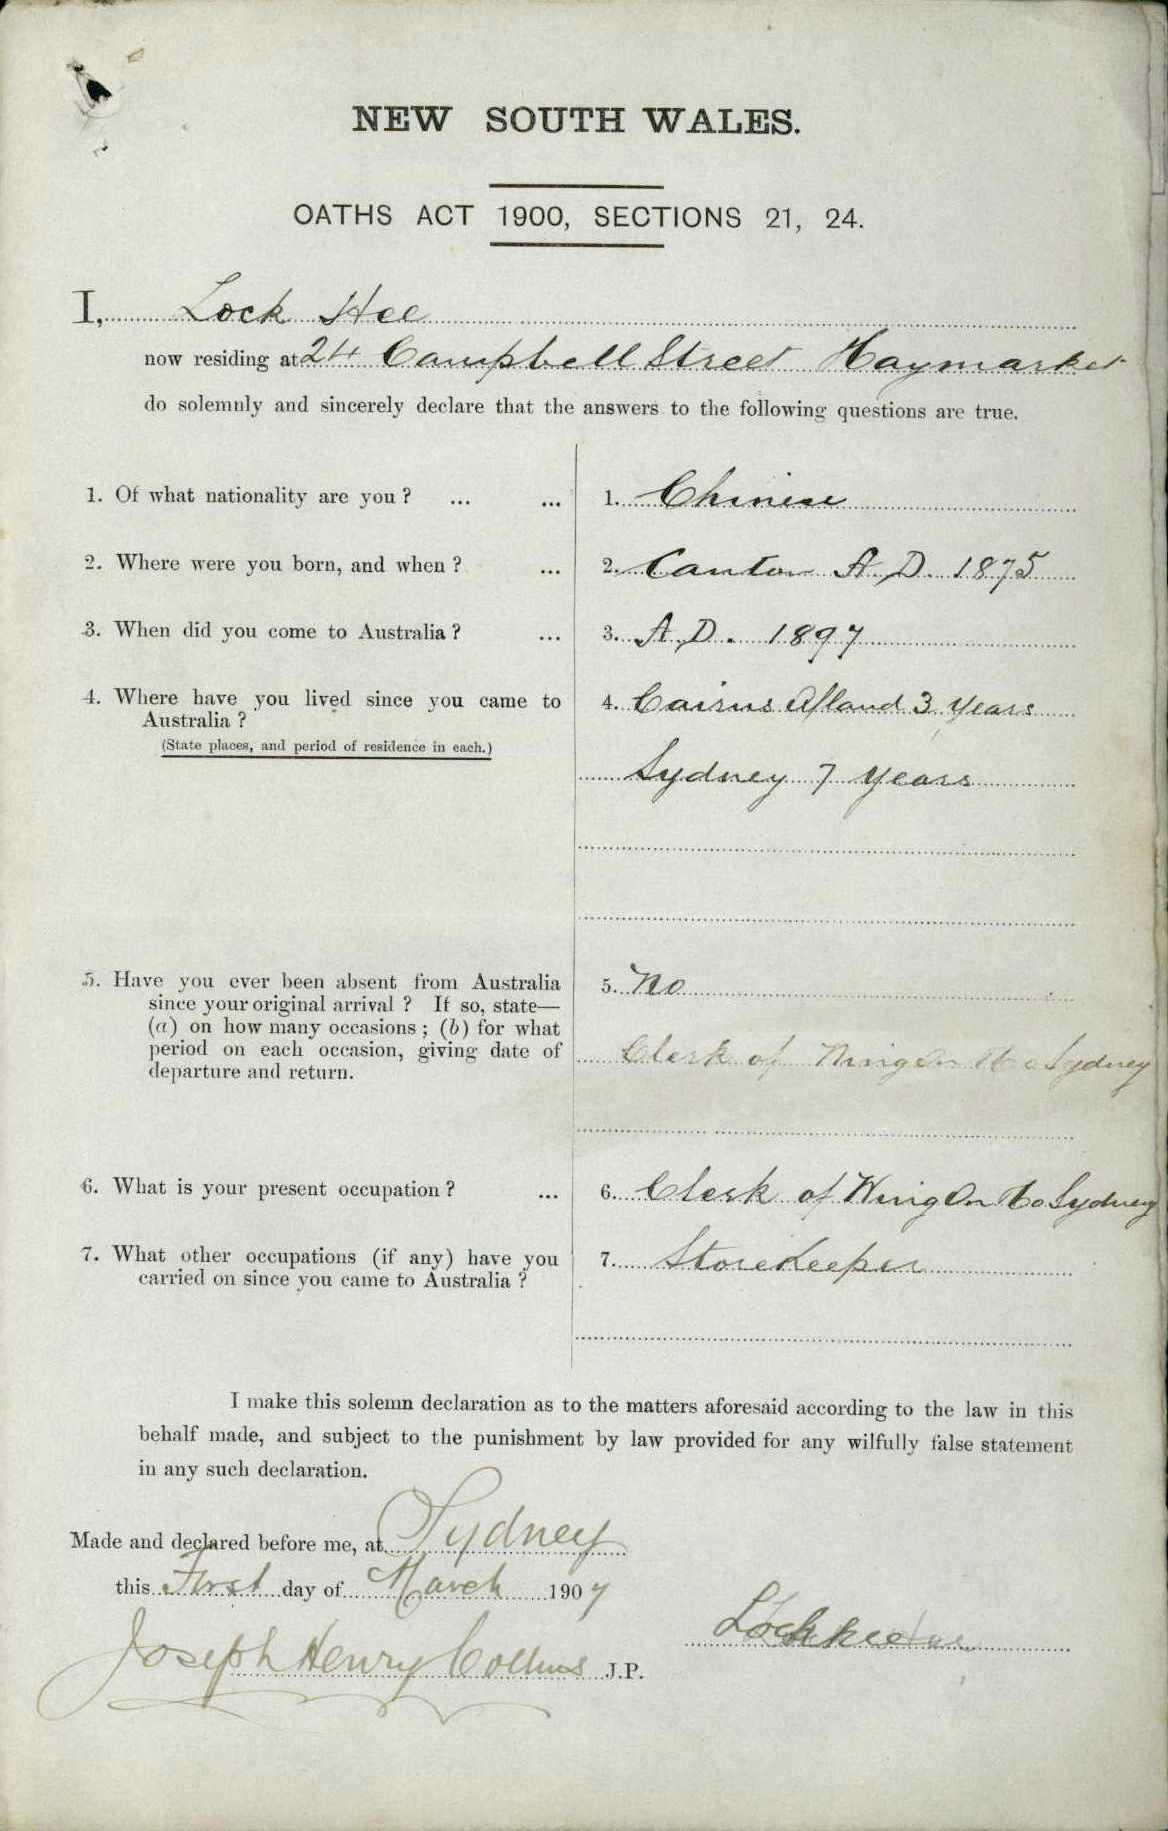 NEW SOUTH WALES.
OATHS ACT 1900, SECTIONS 21, 24.
I, Lock Hee
now residing at 24 Campbell Street Haymarket
do solemnly and sincerely declare that the answers to the following questions are true.
1. Of what nationality are you ? ... ...
1. Chinese
2. Where were you born, and when ? ...
2. Canton A.D. 1875
3. When did you come to Australia ? ...
3. A.D. 1897
4. Where have you lived since you came to
Australia ?
(State places, and period of residence in each.)
4. Cairns Qland 3 Years
Sydney 7 Years
5. Have you ever been absent from Australia
since your original arrival ? If so, state—
(a) on how many occasions ; (b) for what
period on each occasion, giving date of
departure and return.
5. No
Clerk of Wing On & Co Sydney
6. What is your present occupation ? ...
6. Clerk of Wing On & Co Sydney
7. What other occupations (if any) have you
carried on since you came to Australia ?
7. Storekeeper
I make this solemn declaration as to the matters aforesaid according to the law in this
behalf made, and subject to the punishment by law provided for any wilfully false statement
in any such declaration.
Made and declared before me, at Sydney
this First day of March 1907
Lock hee
Joseph Henry Collins J.P.